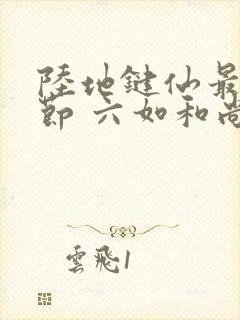 陸地鍵仙最
節 六如和尚
雲飛1